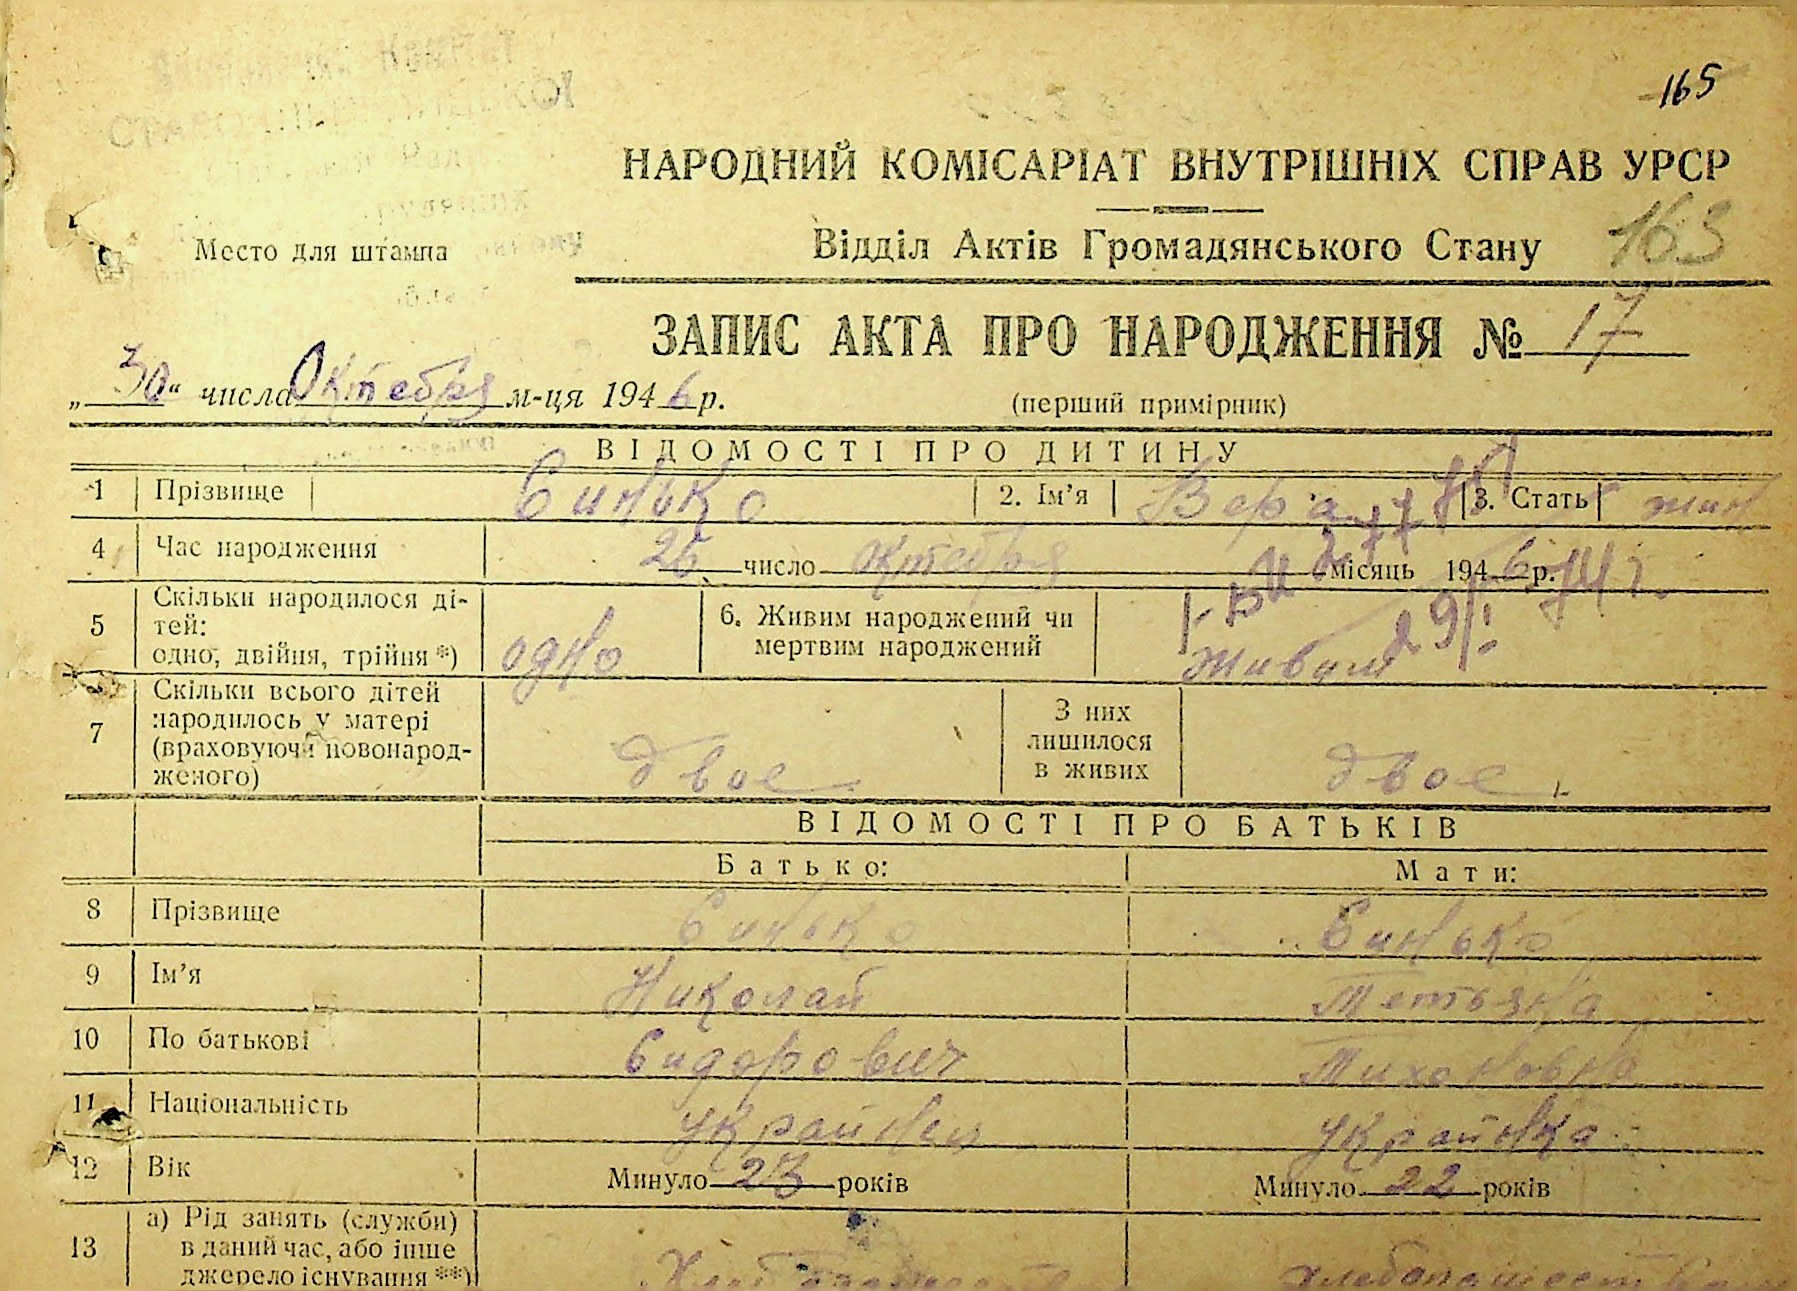 165
НАРОДНИЙ КОМІСАРІАТ ВНУТРІШНІХ СПРАВ УРСР
Место для штампа
Відділ Актів Громадянського Стану 163
ЗАПИС АКТА ПРО НАРОДЖЕННЯ № 17
„30“ числа Октебря м-ця 1946 р.
(перший примірник)
ВІДОМОСТІ ПРО ДИТИНУ
1 Прізвище Синько 2. Ім’я Вера 3. Стать жин
4 Час народження 26 число Октебря місяць 1946 р.
5 Скільки народилося ді-
тей:
одно, двійня, трійня *) одно
6. Живим народжений чи
мертвим народжений живим
7 Скільки всього дітей
народилось у матері
(враховуючи новонарод-
женого) двое
З них
лишилося
в живих двое
ВІДОМОСТІ ПРО БАТЬКІВ
Батько: Мати:
8 Прізвище Синько Синько
9 Ім’я Николай Тетьяна
10 По батькові Сидорович Тихоновна
11 Національність украинец украинка
12 Вік Минуло 23 років Минуло 22 років
13 а) Рід занять (служби)
в даний час, або інше
джерело існування **)